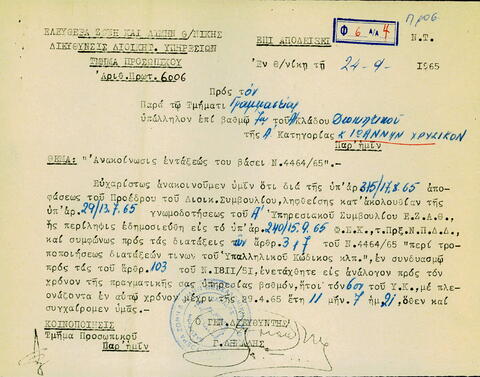 Προς
ΕΛΕΥΘΕΡΑ ΖΩΝΗ ΚΑΙ ΛΙΜΗΝ Θ/ΝΙΚΗΣ
ΔΙΕΥΘΥΝΣΙΣ ΔΙΟΙΚΗΤ. ΥΠΗΡΕΣΙΩΝ
ΤΜΗΜΑ ΠΡΟΣΩΠΙΚΟΥ
Ἀριθ.Πρωτ. 6006
ΕΠΙ ΑΠΟΔΕΙΞΕΙ
Φ 6 Α/Α 4
Ν.Τ.
Ἐν Θ/νίκη τῇ 24-9- 1965
Πρός τόν
Παρά τῷ Τμήματι Γραμματείας
ὑπάλληλον ἐπί βαθμῷ 7ῳ τοῦ Α΄ Κλάδου Διοικητικοῦ
τῆς Α΄ Κατηγορίας κ. ΙΩΑΝΝΗΝ ΧΡΥΣΙΚΟΝ
Παρ'ἡμῖν
ΘΕΜΑ: "Ἀνακοίνωσις ἐντάξεώς του βάσει Ν.4464/65".-
Εὐχαρίστως ἀνακοινοῦμεν ὑμῖν ὅτι διά τῆς ὑπ'ἀρ. 315/17.8.65 ἀπο-
φάσεως τοῦ Προέδρου τοῦ Διοικ.Συμβουλίου, ληφθείσης κατ'ἀκολουθίαν τῆς
ὑπ'ἀρ. 29/13.7.65 γνωμοδοτήσεως τοῦ Α΄ Ὑπηρεσιακοῦ Συμβουλίου Ε.Ζ.Λ.Θ.,
ἧς περίληψις ἐδημοσιεύθη εἰς τό ὑπ'ἀρ. 240/15.9.65 Φ.Ε.Κ.,Τ.Πρξ.Ν.Π.Δ.Δ.,
καί συμφώνως πρός τάς διατάξεις τῶν ἄρθρ. 3, 7 τοῦ Ν.4464/65 "περί τρο-
ποποιήσεως διατάξεών τινων τοῦ Ὑπαλληλικοῦ Κώδικος κλπ.", ἐν συνδυασμῷ
πρός τάς τοῦ ἄρθρ. 103 τοῦ Ν.1811/51, ἐνετάχθητε εἰς ἀνάλογον πρός τόν
χρόνον τῆς πραγματικῆς σας ὑπηρεσίας βαθμόν, ἤτοι τόν 6ον τοῦ Υ.Κ., μέ πλεο-
νάζοντα ἐν αὐτῷ χρόνον μέχρι τῆς 29.4.65 ἔτη 11 μῆν. 7 ἡμ. 21, ὅθεν καί
συγχαίρομεν ὑμᾶς.-
ΚΟΙΝΟΠΟΙΗΣΙΣ
Τμῆμα Προσωπικοῦ
Παρ'ἡμῖν
Ο ΓΕΝ.ΔΙΕΥΘΥΝΤΗΣ